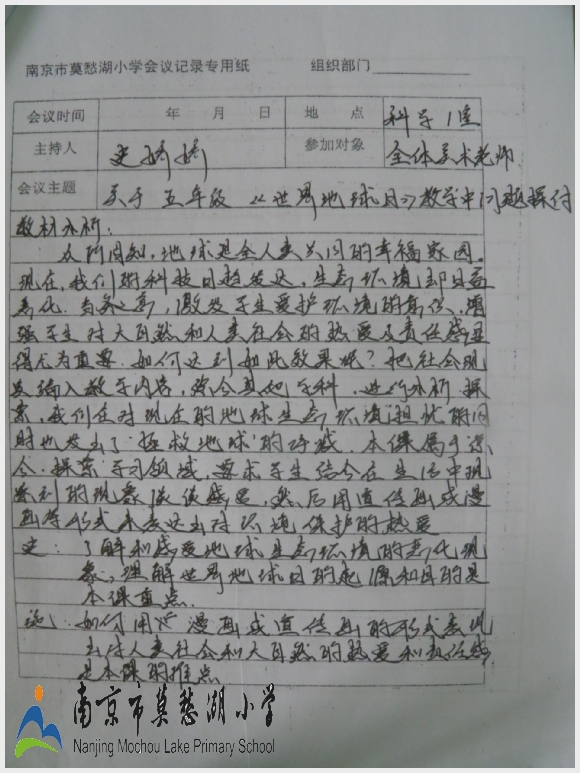 南京市莫愁湖小学会议记录专用纸 组织部门
会议时间 年 月 日 地 点 科学1室
主持人 史 参加对象 全体美术老师
会议主题 关于五年级《世界地球日》教学中问题探讨
教材分析:
众所周知,地球是全人类共同的幸福家园。
现在,我们的科技日趋发达,生态环境却日益
恶化。当务之急,激发学生爱护环境的真情,增
强学生对大自然和人类社会的热爱及责任感显
得尤为重要。如何达到如此效果呢?把社会现
象编入教学内容,综合其他学科,进行分析探
索,我们在对现在的地球生态环境担忧的同
时也发出了"拯救地球"的呼喊。本课属于综
合·探索学习领域,要求学生结合在生活中观
察到的现象谈谈感受,然后用宣传画或漫
画等形式来表达出对环境保护的热爱
史:了解和感受地球生态环境的恶化现
象,理解世界地球日的起源和目的是
本课重点.
如何用 漫画或宣传画的形式表现
出对人类社会和大自然的热爱和责任感
是本课的难点
南京市莫愁湖小学
Nanjing Mochou Lake Primary School